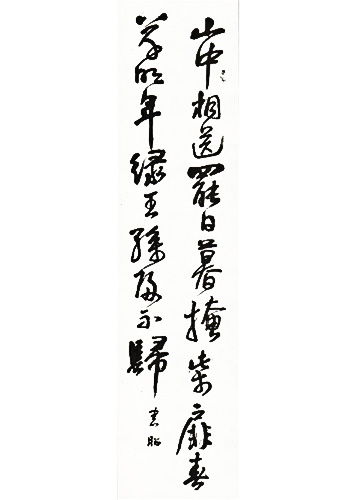 山中相送罷日暮掩柴扉春
草明年綠王孫歸不歸